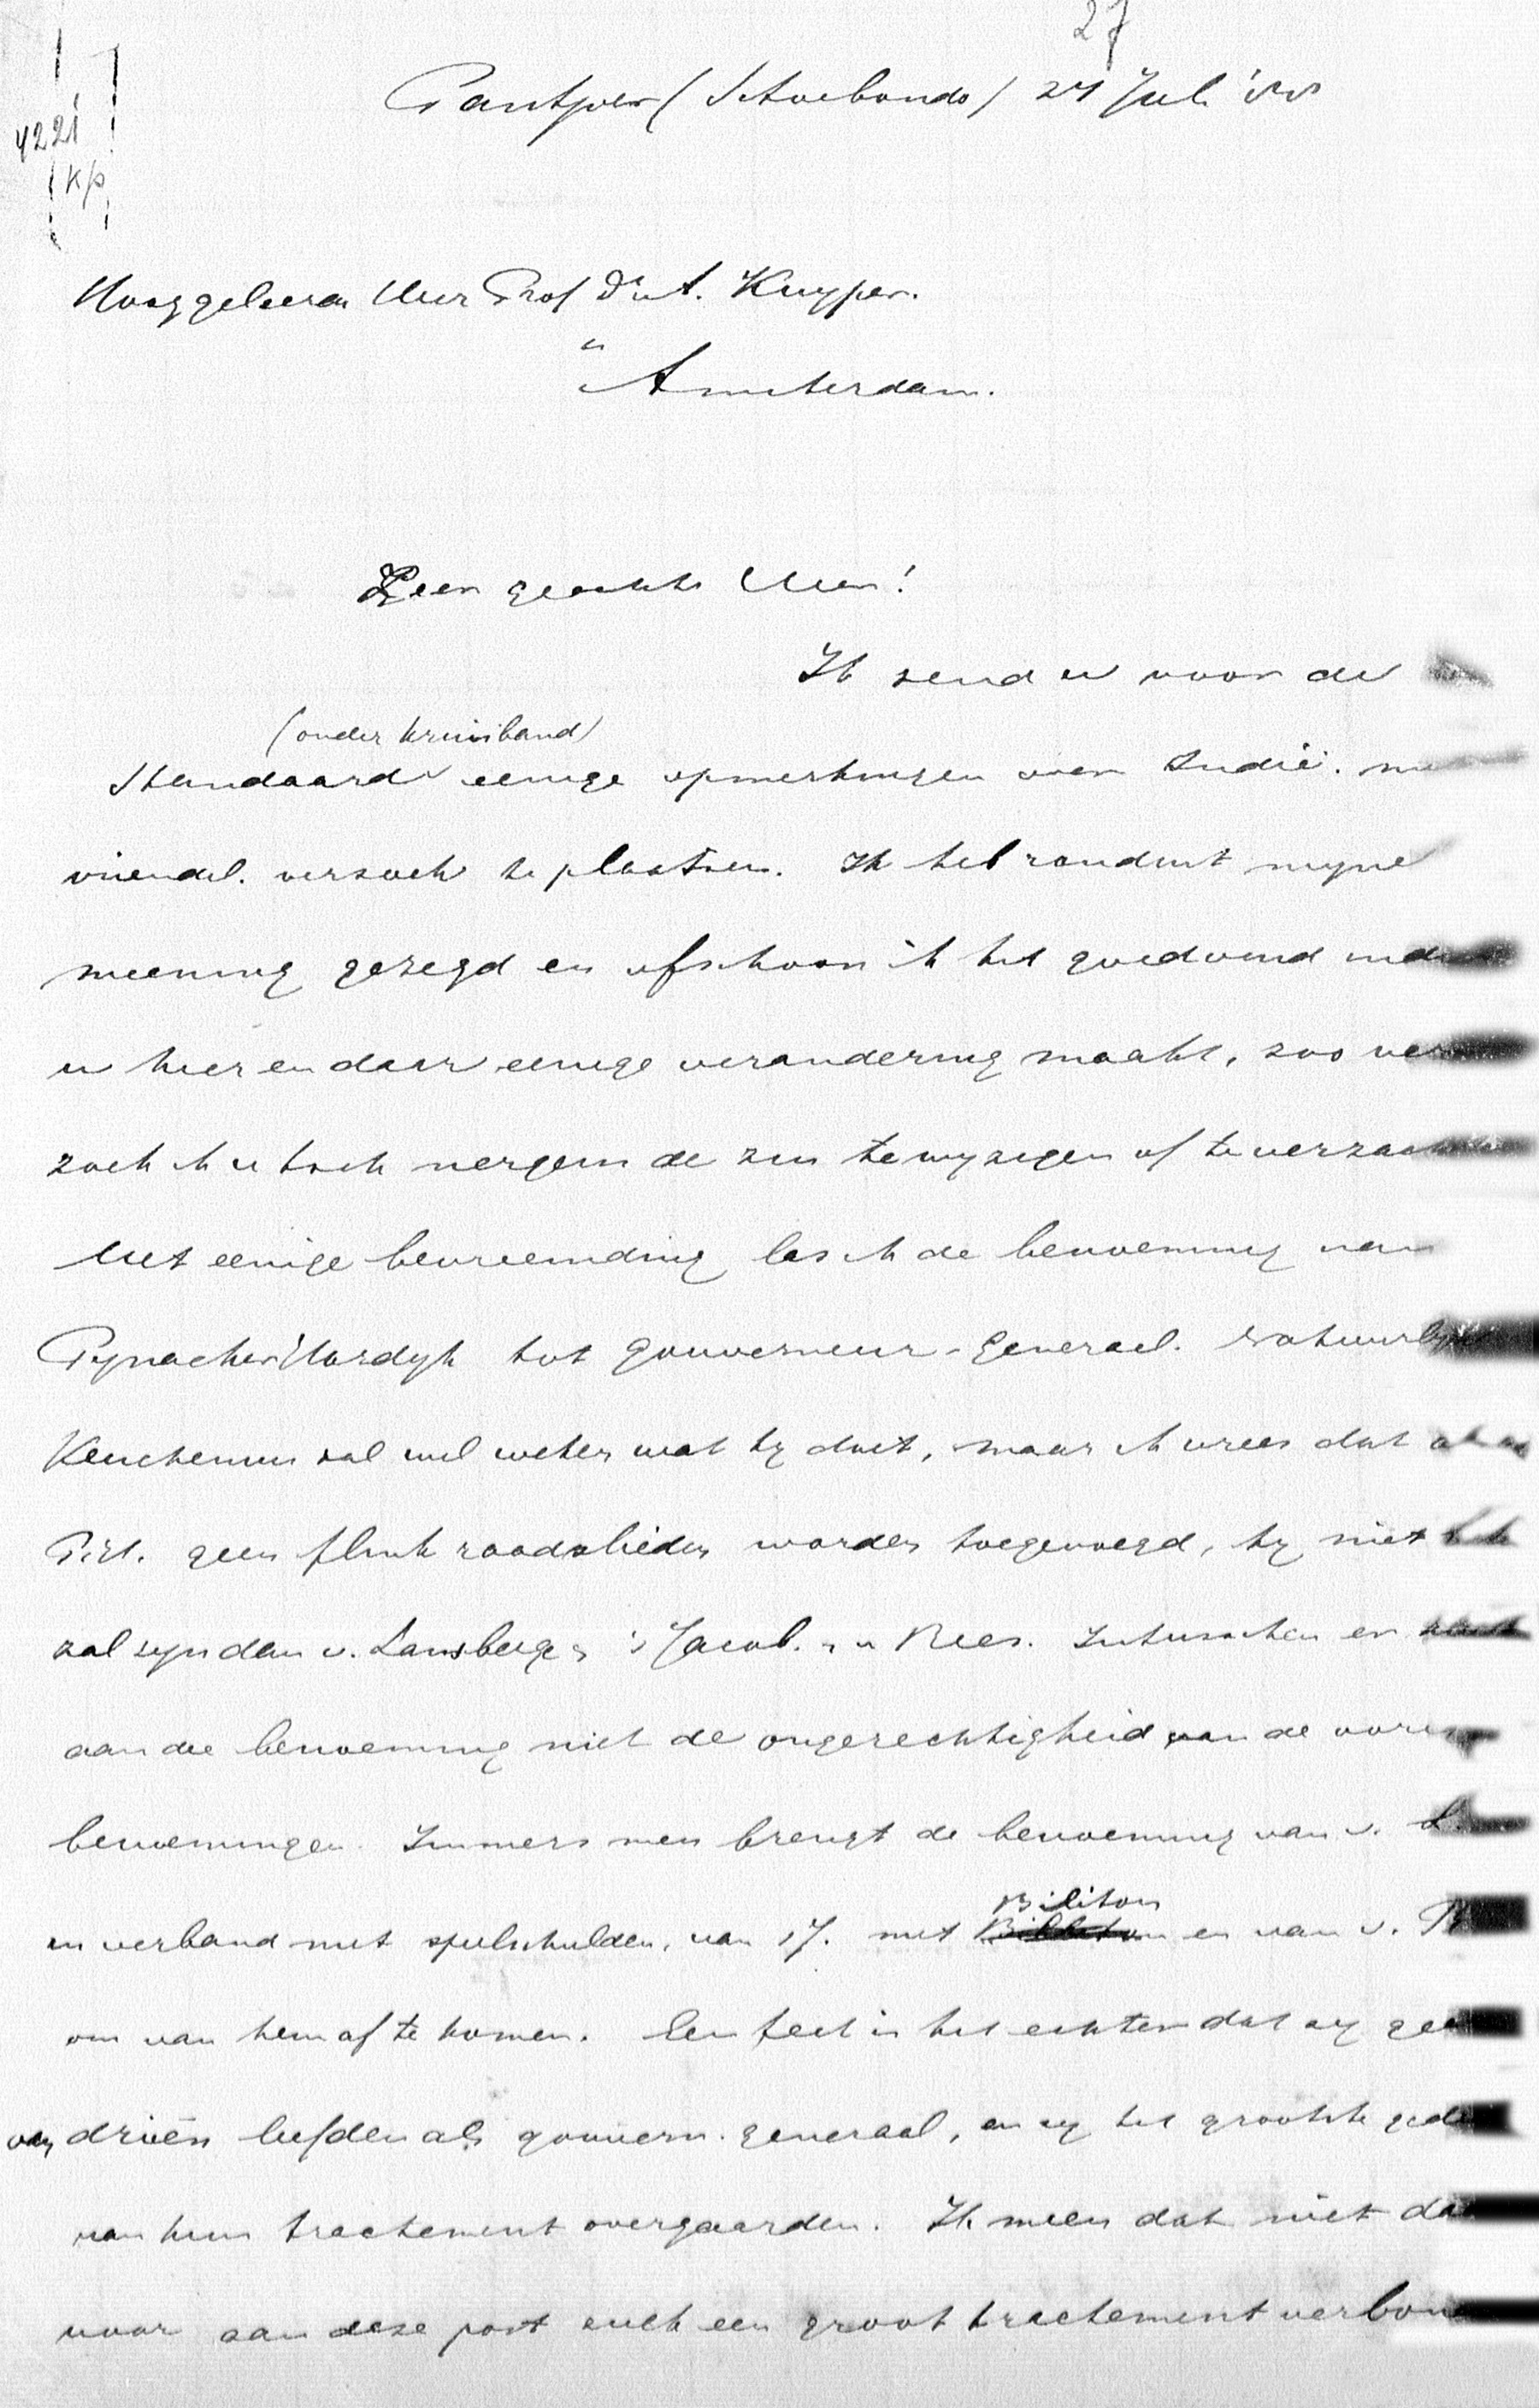 27
Pantjoer (Sitoebondo) 24 Juli '88
4221
Kp
Hooggeleerde Heer Prof Dr A. Kuyper.
te
Amsterdam.
Zeer geachte Heer!
Ik zend u voor de
(onder kruisband)
Standaard eenige opmerkingen over Indië. met
vriendel. verzoek te plaatsen. Ik heb ronduit mijne
meening gezegd en ofschoon ik het goedvind indien
u hier en daar eenige verandering maakt, zoo ver
zoek ik u toch nergens de zin te wijzigen of te verzachten
Met eenige bevreemding las ik de benoeming van
Pijnacker Hordijk tot gouverneur-generaal. Natuurlijk
Keuchenius zal wel weten wat hij doet, maar ik vrees dat als aan
P.H. geen flink raadslieden worden toegevoegd, hij niet
zal zijn dan v. Lansberge, 's Jacob. v. Rees. Intusschen er
aan die benoeming niet de ongerechtigheid van de vorige
benoemingen. Immers men brengt de benoeming van v. L.
in verband met speelschulden, van s'J. met Biliton en van v. R
om van hem af te komen. Een feit is het echter dat zij
van drieën leefden als gouvern. generaal, en zij het grootste
van hun tractement overgaarden. Ik meen dat niet daar
voor aan deze post zulk een groot tractement verbonden